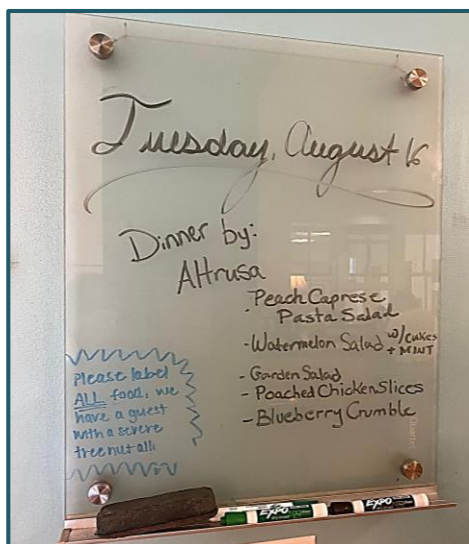 Tuesday, August 16
Dinner by:
Altrusa
- Peach Caprese
Pasta Salad
- Watermelon Salad w/cukes
+ MINT
- Garden Salad
- Poached Chicken Slices
- Blueberry Crumble
Please label
ALL food, we
have a guest
with a severe
tree nut all
EXPO
EXPO